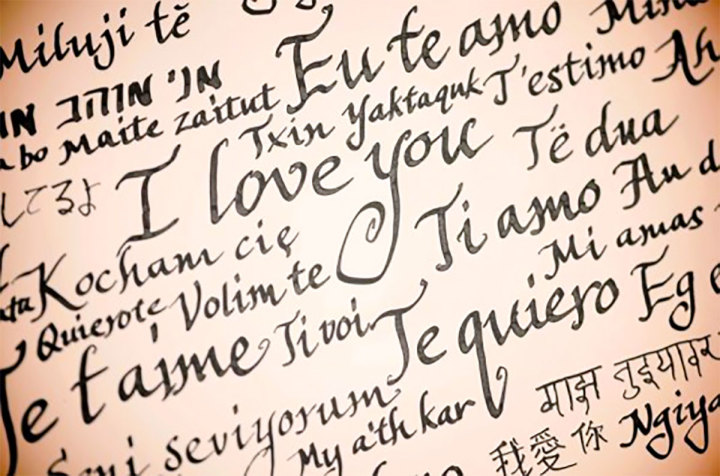 Miluji tě
Eu te amo
אני אוהב או
bo Maite zaitut
Txin yaktaquk T'estimo Ah
してるよ
I love you Të dua
Kocham cię Ti amo Au d
Quierote Volim te Mi amas
Je t'aime Ti voi Te quiero Eg e
Seni seviyorum माझं तुझ्यावर
My a'th kar 我愛你 Ngiya